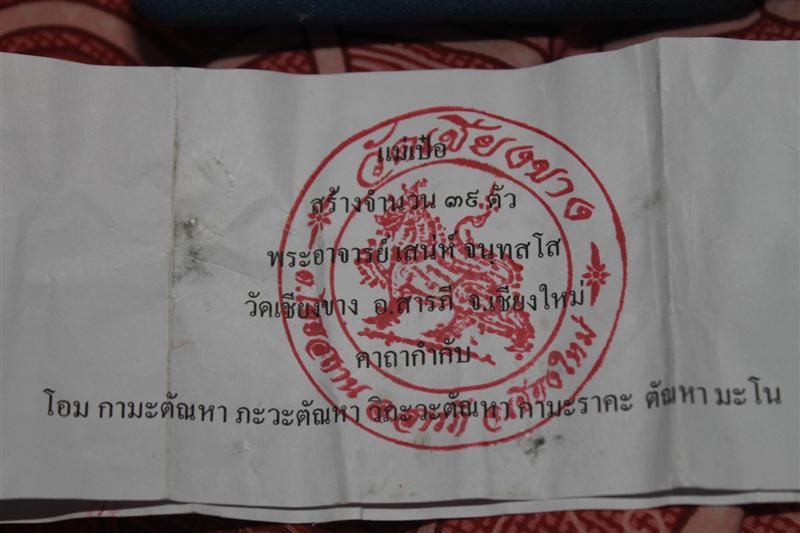 วัดเชียงขาง
แม่เป๋อ
สร้างจำนวน ๓๙ ตัว
พระอาจารย์ เสน่ห์ จนฺทสโส
วัดเชียงขาง อ.สารภี จ.เชียงใหม่
คาถากำกับ
โอม กามะตัณหา ภะวะตัณหา วิภะวะตัณหา กามะราคะ ตัณหา มะโน
อ.สารภี จ.เชียงใหม่